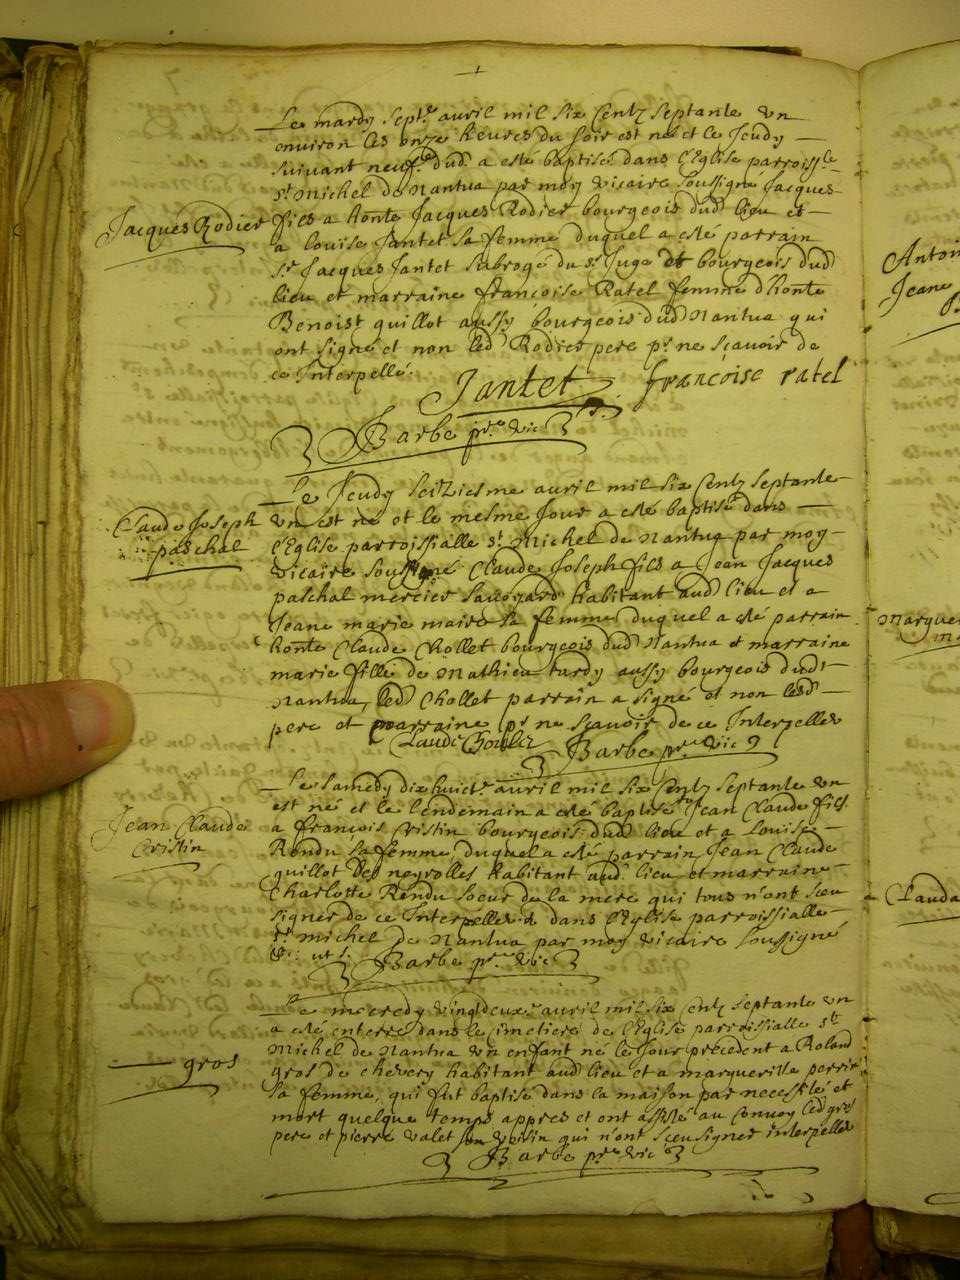 Le mardy sept.e avril mil six Centz septante un
environ les onze heures du soir est né et le Jeudy
suivant neuf.e dud. a esté baptisé dans l'Eglise parroiss.le
st Michel de Nantua par moy vicaire soussigné Jacques
Jacques Rodier
fils a honte Jacques Rodier bourgeois dud lieu et
a louise Jantet sa femme duquel a esté parrain
sr Jacques Jantet subrogé du sr Juge et bourgeois dud
lieu et marraine francoise Ratel femme d'honte
Benoist quillot aussy bourgeois dud Nantua qui
ont signé et non led Rodier pere pr ne sçavoir de
ce Interpellé.
Jantet françoise ratel
Barbe pre vic
Le Jeudy seiziesme avril mil six Centz septante
Claude Joseph
paschal
un est né et le mesme Jour a esté baptisé dans
l'Eglise parroissialle st Michel de Nantua par moy
vicaire soussigné Claude Joseph fils a Jean Jacques
paschal mercier savoyard habitant aud lieu et a
Jeane marie maire sa femme duquel a esté parrain
honte Claude Chollet bourgeois dud Nantua et marraine
marie fille de Mathieu tardy aussy bourgeois dud
Nantua, led Chollet parrain a signé et non lesd
pere et marraine pr ne sçavoir de ce Interpellés
Claude Chollet Barbe pre vic
Le samedy dix huict.e avril mil six Centz septante un
est né et le lendemain a esté baptisé Jean Claude fils
Jean Claude
Cristin
a francois Cristin bourgeois dud lieu et a Louise
Rendu sa femme duquel a esté parrain Jean Claude
quillot des neyrolles habitant aud lieu et marraine
Charlotte Rendu soeur de la mere qui tous n'ont sceu
signer de ce Interpellés dans l'Eglise parroissialle
st michel de Nantua par moy vicaire soussigné
Barbe pre vic
Le mecredy vingtdeux.e avril mil six Centz septante un
a esté enterré dans le cimetiere de l'Eglise parroissialle st
Michel de Nantua un enfant né le Jour precedent a Roland
gros
gros de chevery habitant aud lieu et a marguerite perrin
sa femme, qui fut baptisé dans la maison par necessité et
mort quelque temps appres et ont assisté au Convoy led gros
pere et pierre valet son voisin qui n'ont sceu signer interpellés
Barbe pre vic
Jeane
Clauda